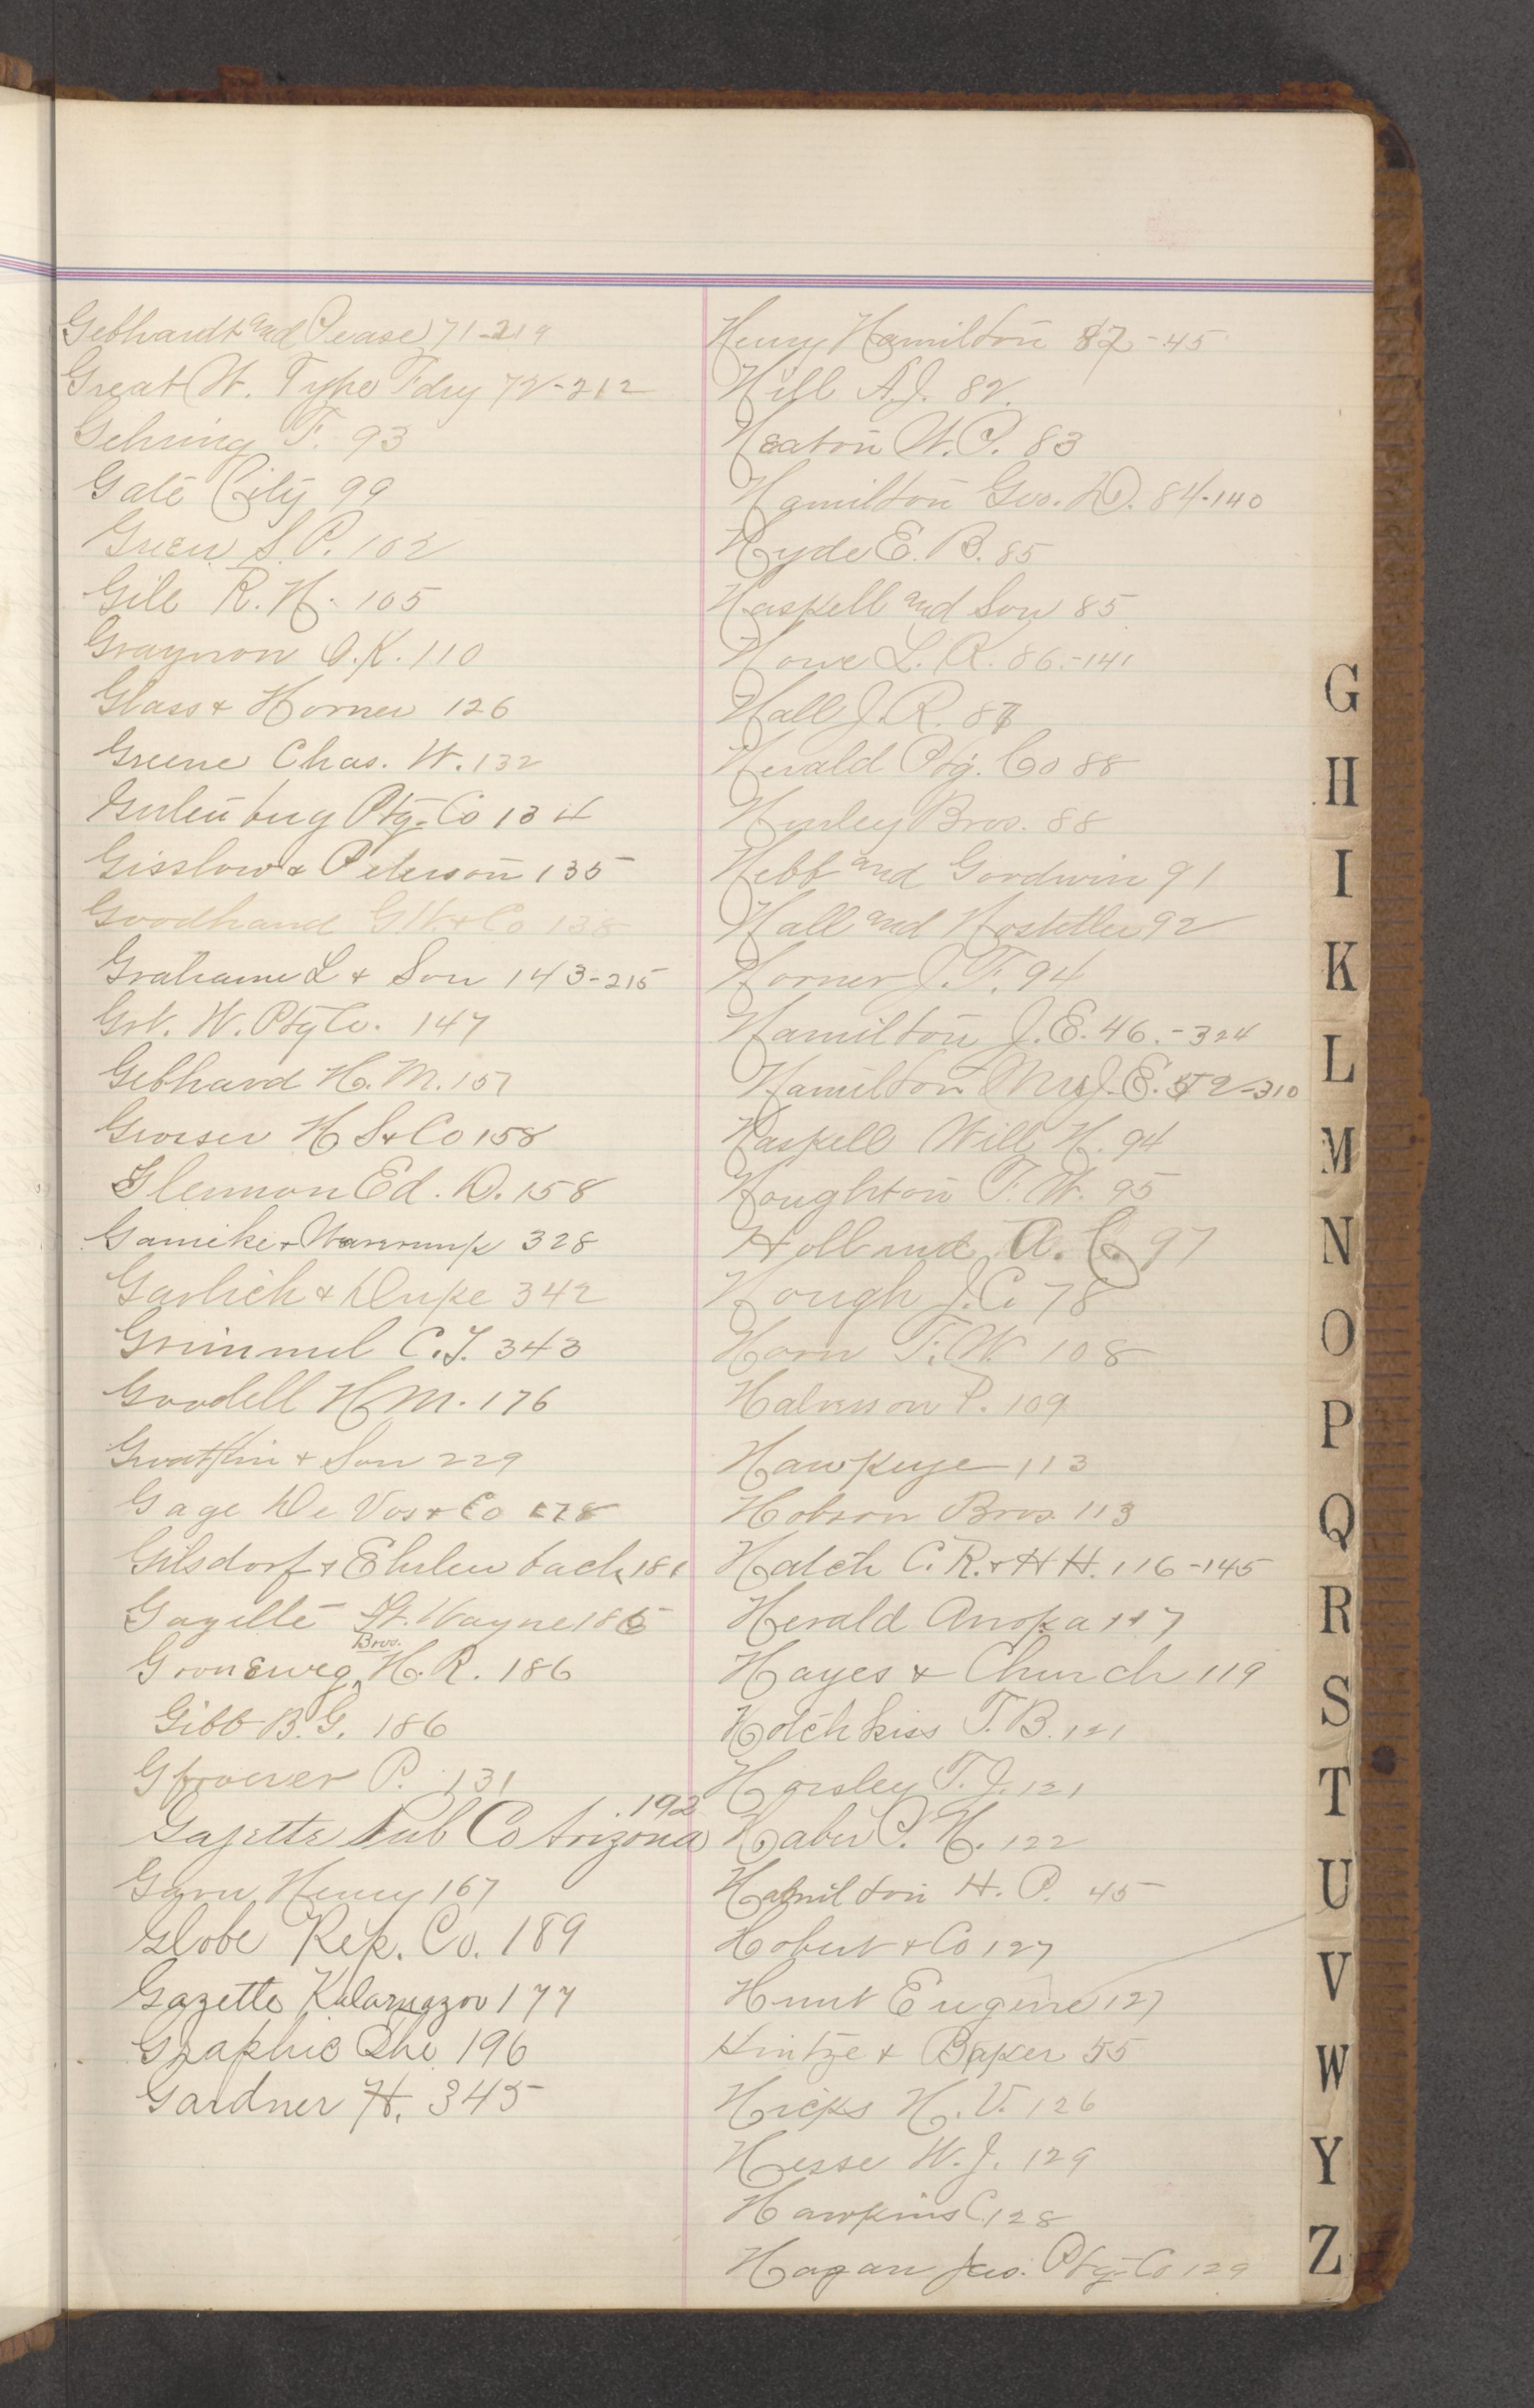 Gebhardt and Pease 71-219
Great W. Type Fdry 72-212
Gehring F. 93
Gate City 99
Green S. P. 102
Gile R. H. 105
Graynon O. K. 110
Glass & Horner 126
Greene Chas. W. 132
Ptg. Co 134
Gisslow & Peterson 135
Goodhand G W. & Co 138
Grahame L & Son 143-215
Grt. W. Ptg Co. 147
Gebhard H. M. 157
Grosser H S & Co 158
Glennon Ed. D. 158
328
Garlich & Dupe 342
Grimmel C. J. 343
Goodell H M. 176
Gwatkin & Son 229
Gage De Vos & Co 178
Gilsdorf & Ehlenbach 181
Gazette Ft. Wayne 185
Bros.
Groneweg H. R. 186
Gibb B. G. 186
Gfroerer P. 131
192
Gazette Pub Co Arizona
Garn Henry 167
Globe Rep. Co. 189
Gazette Kalamazoo 177
Graphic The 196
Gardner H. 345
Henry Hamilton 82-45
Hill A. J. 82
Heaton W. P. 83
Hamilton Geo. D. 84-140
Hyde E. B. 85
Haskell and Son 85
Howe L. R. 86-141
Hall J. R. 87
Herald Ptg. Co 88
Hurley Bros. 88
Hebb and Goodwin 91
Hall and Hostetler 92
Horner J. F. 94
Hamilton J. E. 46-324
Hamilton Mrs J. E. 52-310
Haskell Will H. 94
Houghton F. W. 95
Holland A. C. 97
Hough J. C. 78
Horn F. W. 108
Halvorson P. 109
Hawkeye 113
Hobson Bros. 113
Hatch C. R. & H H. 116-145
Herald Anoka 117
Hayes & Church 119
Hotchkiss T. B. 121
Horsley T. J. 121
Haber P. H. 122
Hamilton H. P. 45
Hobert & Co 127
Hunt Eugene 127
Hintze & Baker 55
Hicks H. V. 126
Hesse W. J. 129
Hawkins C. 128
Hagan Jas. Ptg. Co 129
G
H
I
K
L
M
N
O
P
Q
R
S
T
U
V
W
Y
Z